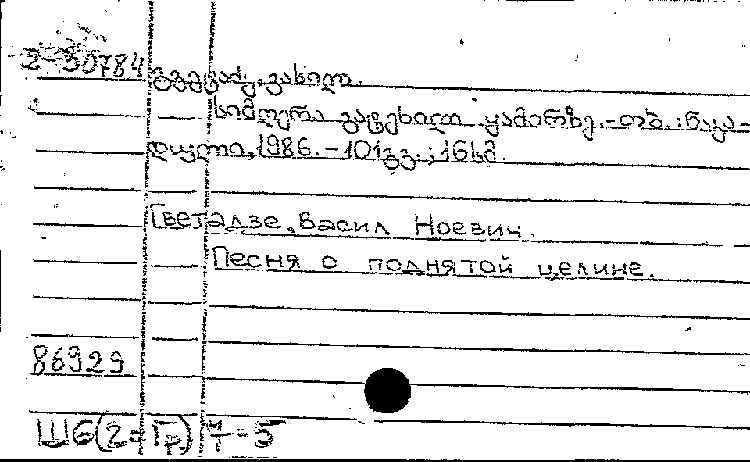 2-30784 გვეტაძე, ვასილ.
სიმღერა გატეხილ ყამირზე.-თბ.:ნაკა-
დული, 1986.-101გვ.;16სმ.
Гветадзе, Васил Ноевич.
Песня о поднятой целине.
86929
Ш6(2=Гр)7-5